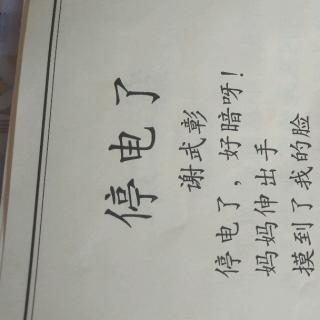 停电了
谢武彰
停电了，好暗呀！
妈妈伸出手
摸到了我的脸